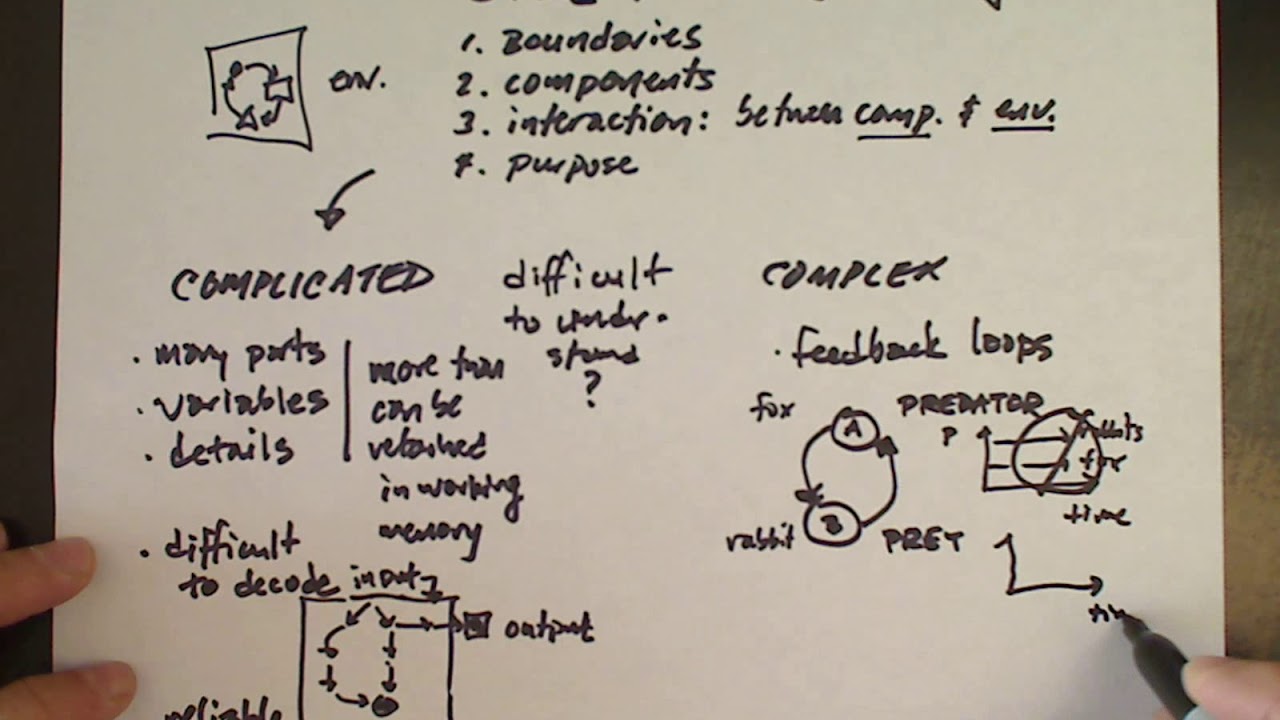 1. Boundaries
env.
2. components
3. interaction: between comp. & env.
4. purpose
COMPLICATED
difficult
to under-
stand
?
COMPLEX
· many parts
· variables
· details
more than
can be
retained
in working
memory
· feedback loops
fox
A
PREDATOR
P
fox
time
rabbit
B
PREY
· difficult
to decode
input
output
reliable